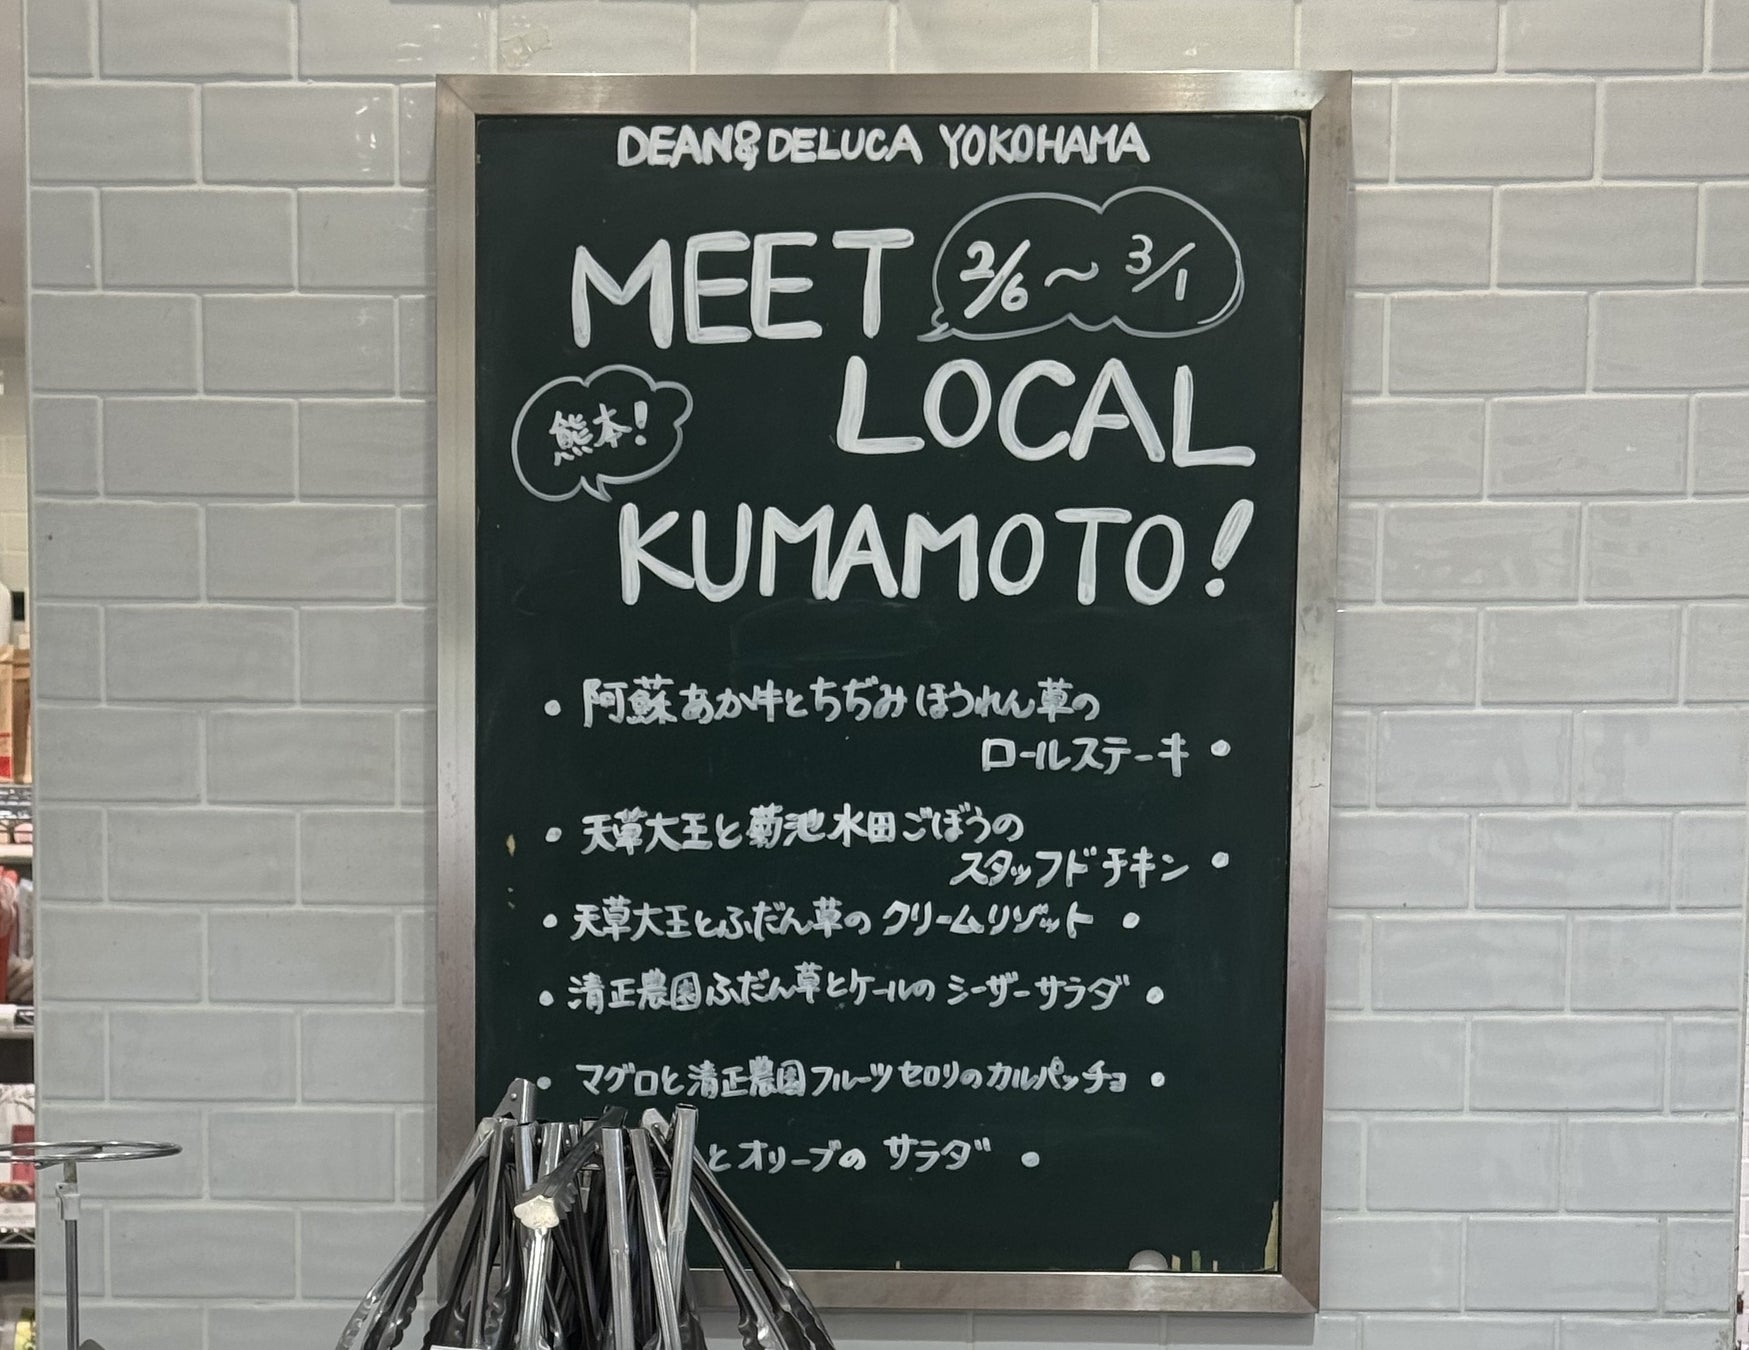 DEAN&DELUCA YOKOHAMA
MEET
2/6〜3/1
LOCAL
熊本!
KUMAMOTO!
・阿蘇あか牛とちぢみほうれん草の
ロールステーキ・
・天草大王と菊池水田ごぼうの
スタッフドチキン・
・天草大王とふだん草のクリームリゾット・
・清正農園ふだん草とケールのシーザーサラダ・
・マグロと清正農園フルーツセロリのカルパッチョ・
とオリーブのサラダ・